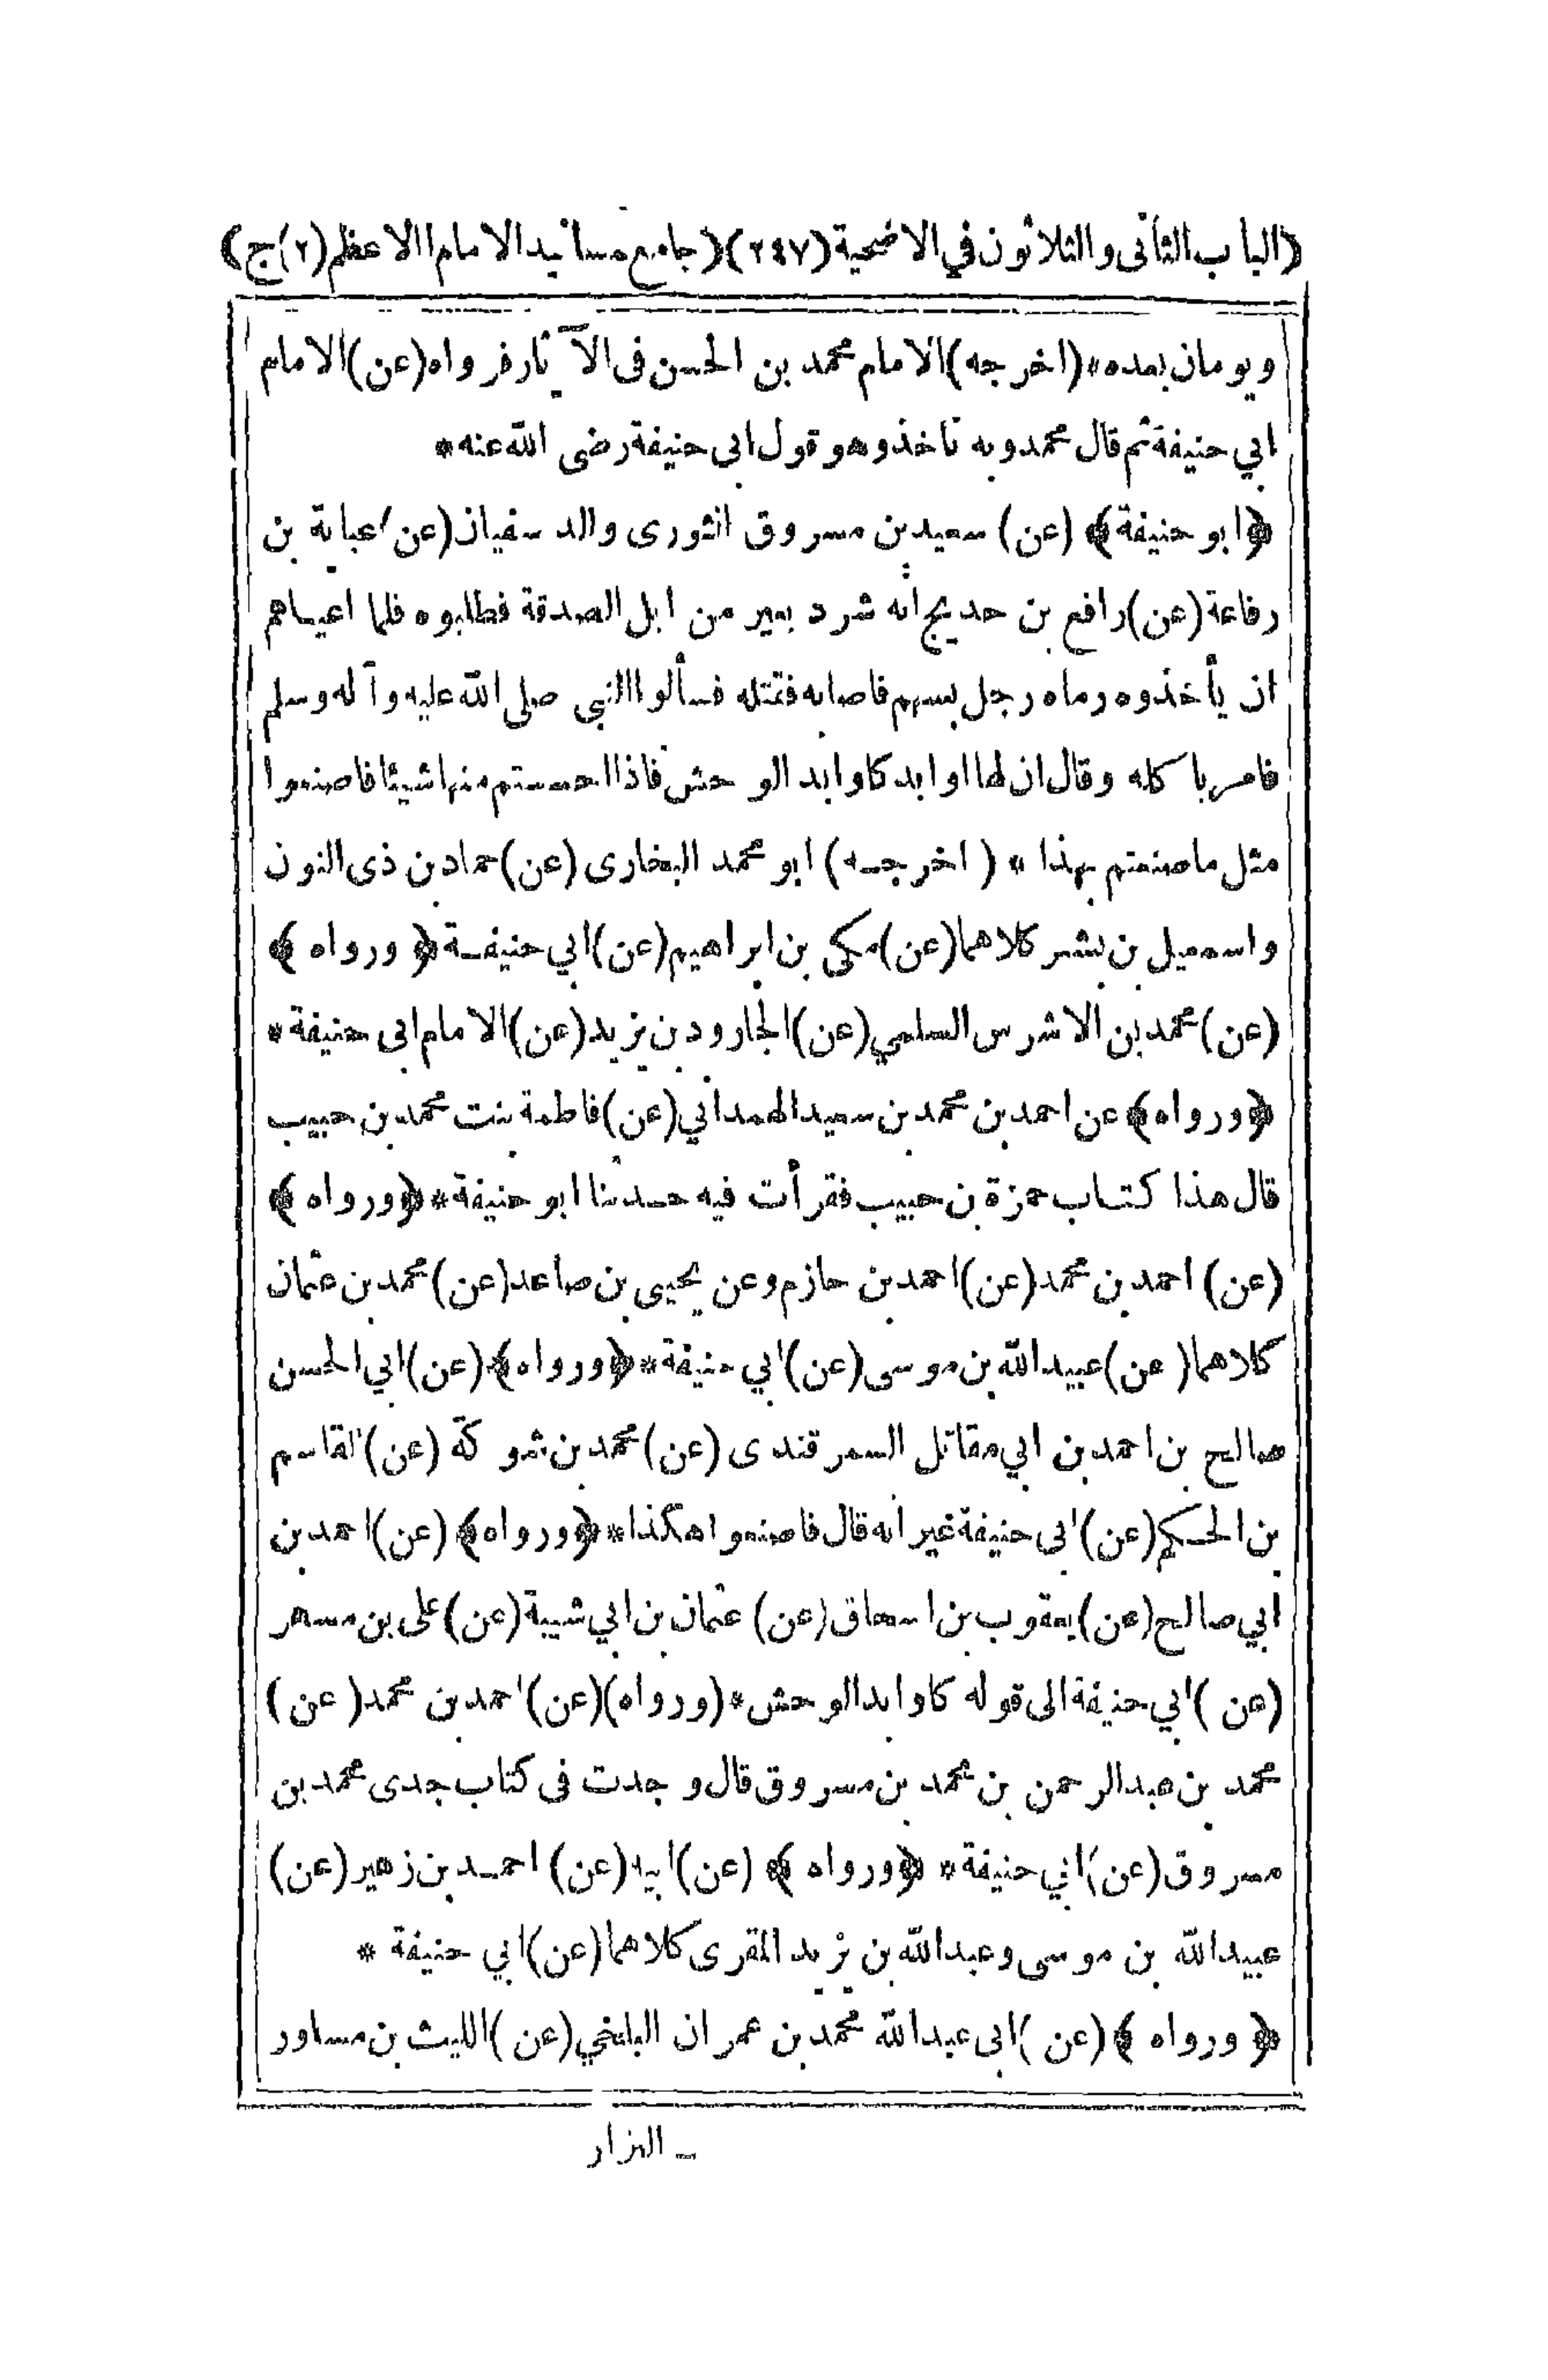 (الباب الثانى والثلاثون في الاضحية (٢٤٧) (جامع مسانيد الامام االاعظم (٢) ج)
ويومان بعده * (اخرجه) الامام محمد بن الحسن فى الآثار فرواه (عن) الامام
ابي حنيفة ثم قال محمد وبه ناخذ وهو قول ابى حنيفة رضى الله عنه *
﴿ابو حنيفة﴾ (عن) سعيد بن مسروق الثورى والد سفيان (عن) عباية بن
رفاعة (عن) رافع بن حديج انه شرد بعير من ابل الصدقة فطلبوه فلما اعياهم
ان يأخذوه رماه رجل بسهم فاصابه فقتله فسألوا النبى صلى الله عليه وآله وسلم
فامر باكله وقال ان لها اوابد كاوابد الوحش فاذا احسستم منها شيئا فاصنعوا
مثل ما صنعتم بهذا * (اخرجه) ابو محمد البخارى (عن) حماد بن ذى النون
واسمعيل بن بشر كلاهما (عن) مكى بن ابراهيم (عن) ابي حنيفة ﴿ورواه﴾
(عن) محمد بن الاشرس السلمي (عن) الجارود بن يزيد (عن) الامام ابى حنيفة *
﴿ورواه﴾ عن احمد بن محمد بن سعيد الهمدانى (عن) فاطمة بنت محمد بن حبيب
قال هذا كتاب حمزة بن حبيب فقرأت فيه حدثنا ابو حنيفة * ﴿ورواه﴾
(عن) احمد بن محمد (عن) احمد بن حازم وعن يحيى بن صاعد (عن) محمد بن عثمان
كلاهما (عن) عبيد الله بن موسى (عن) ابي حنيفة * ﴿ورواه﴾ (عن) ابي الحسن
صالح بن احمد بن ابي مقاتل السمرقندى (عن) محمد بن شوكة (عن) القاسم
بن الحكم (عن) ابى حنيفة غير انه قال فاصنعوا هكذا * ﴿ورواه﴾ (عن) احمد بن
ابي صالح (عن) يعقوب بن اسحاق (عن) عثمان بن ابي شيبة (عن) على بن مسهر
(عن) ابي حنيفة الى قوله كاوابد الوحش * (ورواه) (عن) احمد بن محمد (عن)
محمد بن عبد الرحمن بن محمد بن مسروق قال وجدت فى كتاب جدى محمد بن
مسروق (عن) ابي حنيفة * ﴿ورواه﴾ (عن) ابيه (عن) احمد بن زهير (عن)
عبيد الله بن موسى وعبد الله بن يزيد المقرى كلاهما (عن) ابي حنيفة *
﴿ورواه﴾ (عن) ابى عبد الله محمد بن عمران البلخي (عن) الليث بن مساور
ـ البزار